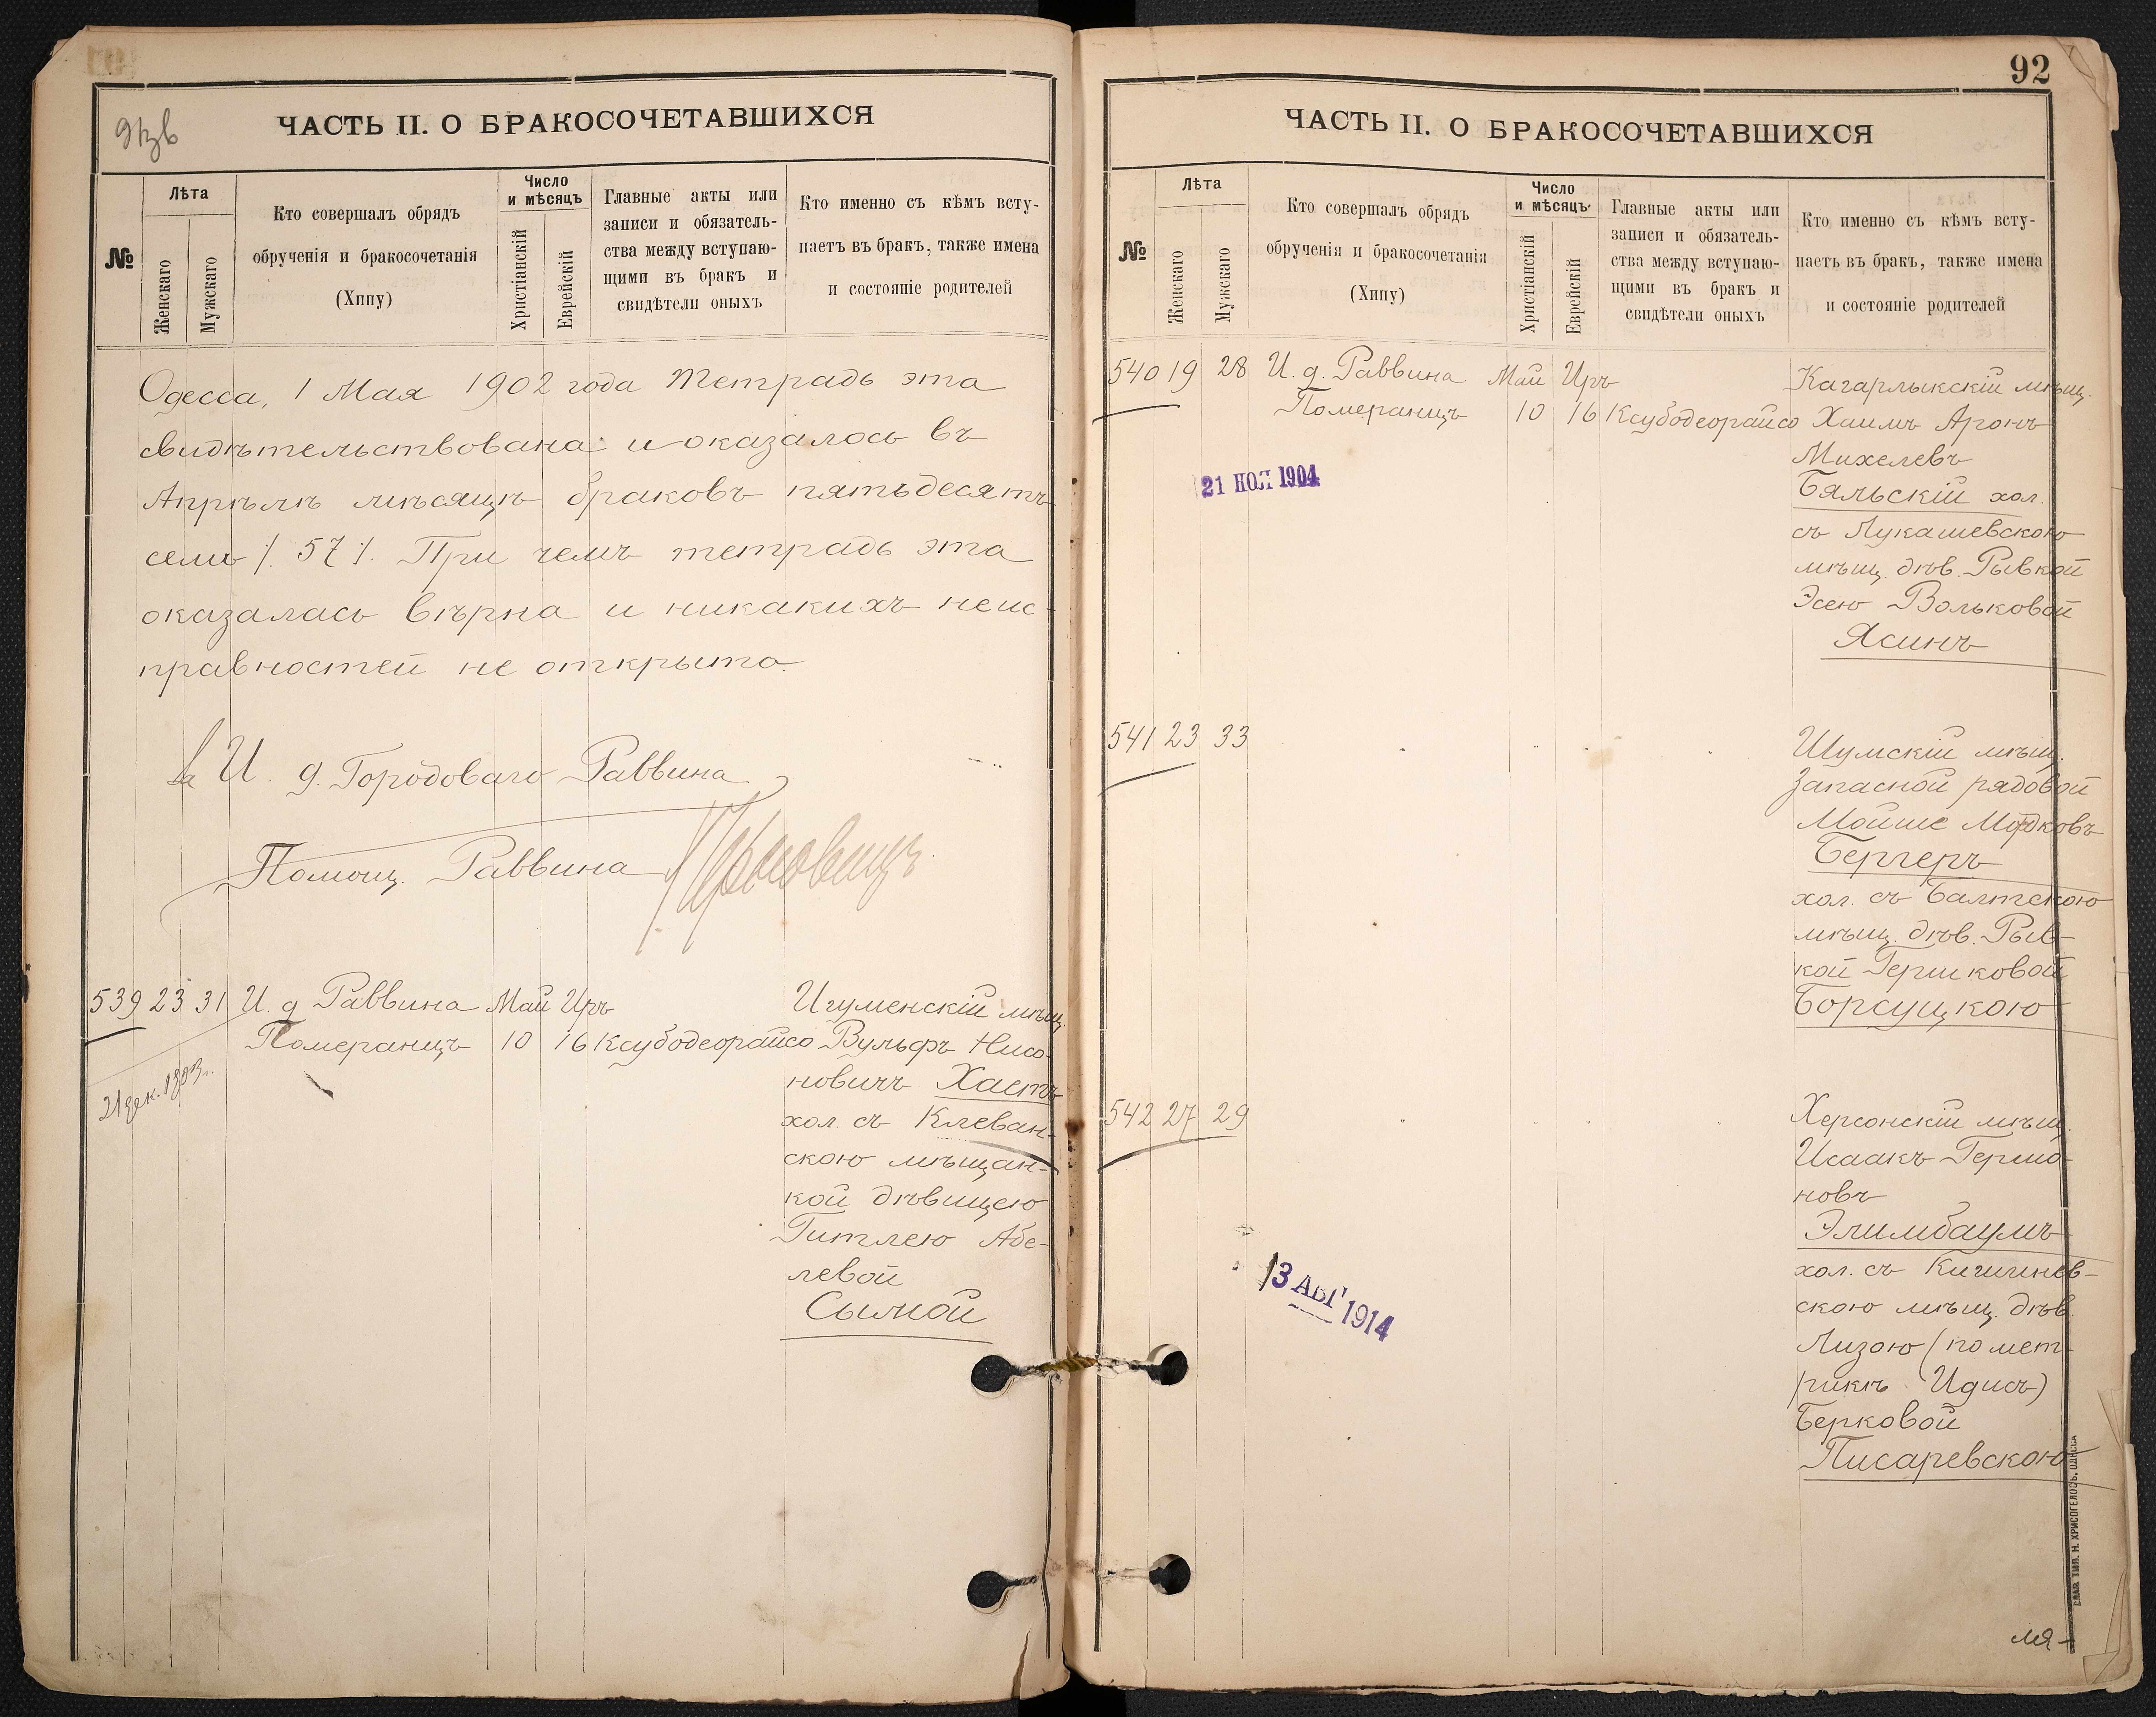 ЧАСТЬ II. О БРАКОСОЧЕТАВШИХСЯ
№
Лѣта
Женскаго
Мужскаго
Кто совершалъ обрядъ
обрученія и бракосочетанія
(Хипу)
Число
и мѣсяцъ
Христіанскій
Еврейскій
Главные акты или
записи и обязатель-
ства между вступаю-
щими въ бракъ и
свидѣтели оныхъ
Кто именно съ кѣмъ всту-
паетъ въ бракъ, также имена
и состояніе родителей
Одесса, 1 Мая 1902 года тетрадь эта
свидѣтельствована и оказалось въ
Апрѣлѣ мѣсяцѣ браковъ пятьдесятъ
семь /. 57 /. При чемъ тетрадь эта
оказалась вѣрна и никакихъ неис-
правностей не открыто.
За И. д. Городоваго Раввина
Помощ. Раввина
539 23 31 И. д Раввина Май Иръ Игуменскій мѣщ.
Померанцъ 10 16 Ксубодеорайсо Вульфъ Нисо-
новичъ Хаетъ
хол. съ Клеван-
скою мѣщан-
кой дѣвицею
Гитлею Абе-
левой
Сымой
21 дек. 1903 г.
92
ЧАСТЬ II. О БРАКОСОЧЕТАВШИХСЯ
№
Лѣта
Женскаго
Мужскаго
Кто совершалъ обрядъ
обрученія и бракосочетанія
(Хипу)
Число
и мѣсяцъ
Христіанскій
Еврейскій
Главные акты или
записи и обязатель-
ства между вступаю-
щими въ бракъ и
свидѣтели оныхъ
Кто именно съ кѣмъ всту-
паетъ въ бракъ, также имена
и состояніе родителей
540 19 28 И. д. Раввина Май Иръ Кагарлыкскій мѣщ.
Померанцъ 10 16 Ксубодеорайсо Хаимъ Аронъ
Михелевъ
21 НОЯ 1904
Бяльскій хол.
съ Лукашевскою
мѣщ. дѣв. Рывкой
Эсею Вольковой
Ясинъ
541 23 33 Шумскій мѣщ.
Запасной рядовой
Мойше Мордковъ
Бергеръ
хол. съ Балтскою
мѣщ. дѣв. Рыв-
кой Гершковой
Борсуцкою
542 27 29 Херсонскій мѣщ.
Исаакъ Гершо-
новъ
Элимбаумъ
хол. съ Кишинев-
скою мѣщ. дѣв.
Лизою (по мет-
рикѣ Идисъ)
Берковой
Писаревскою
13 АВГ 1914
СЛАВ. ТИП. Н. ХРИСОГЕЛОСЪ, ОДЕССА